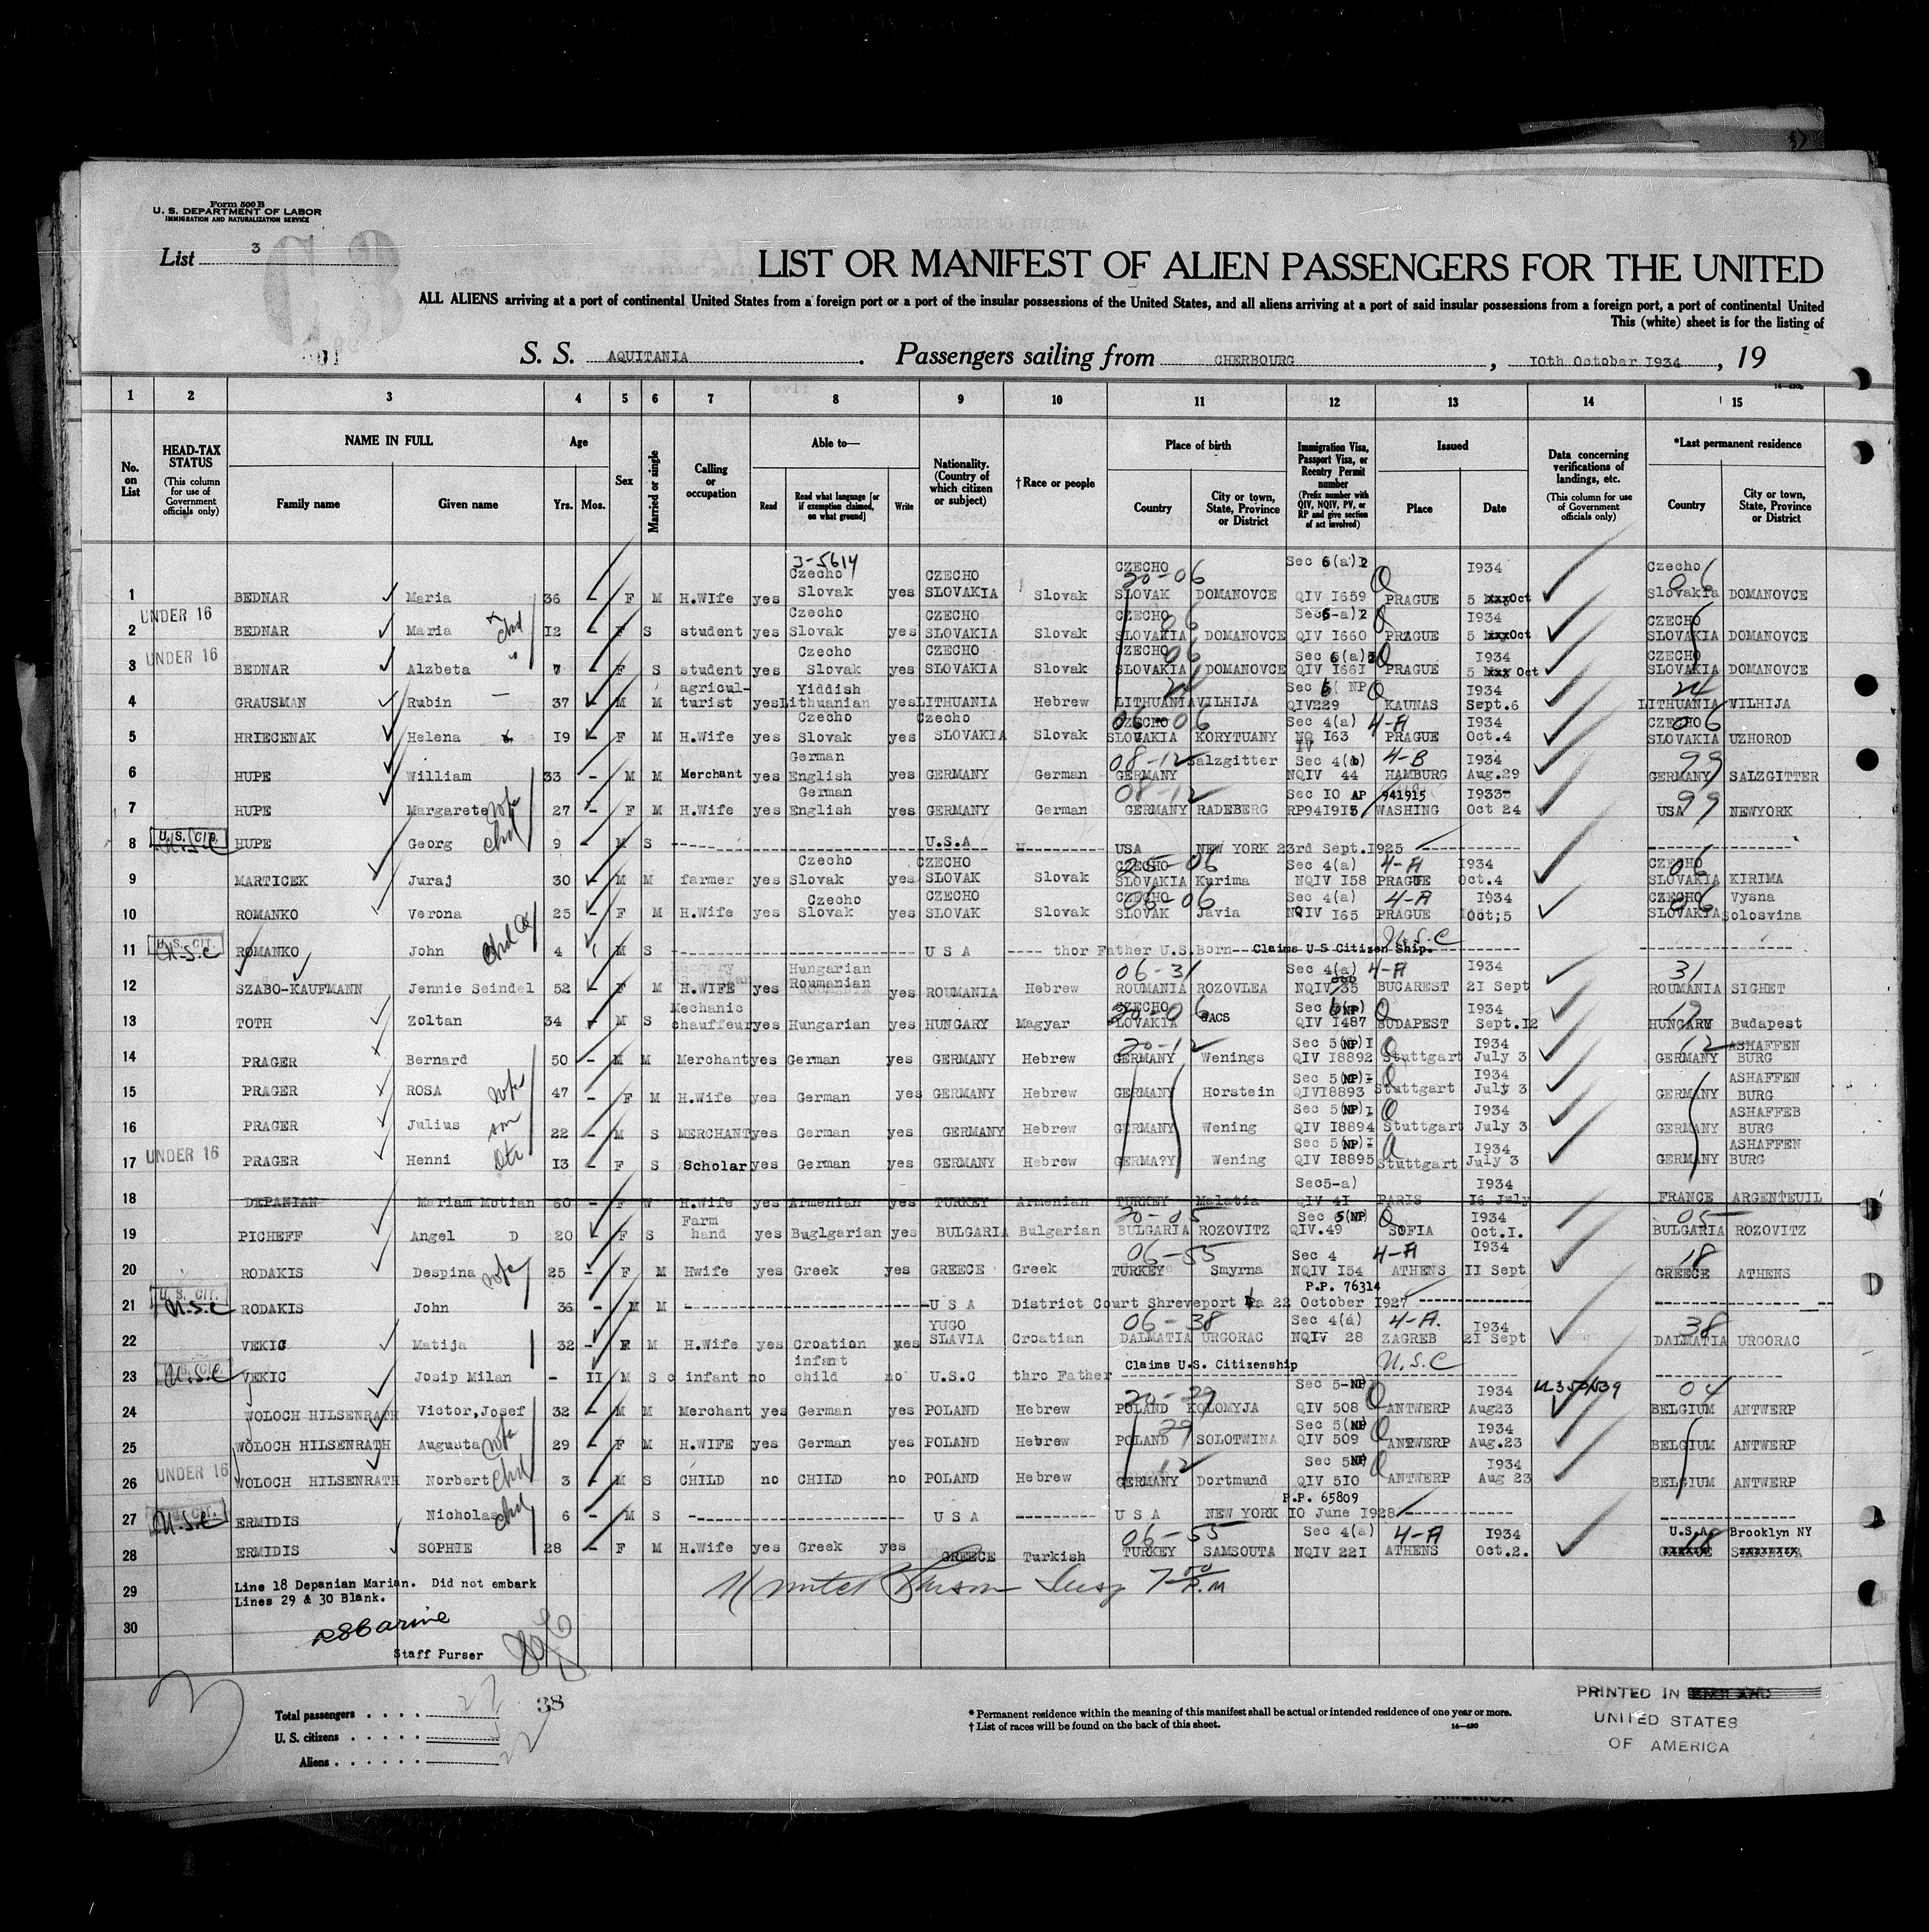 Form 500 B
U. S. DEPARTMENT OF LABOR
IMMIGRATION AND NATURALIZATION SERVICE
List 3
LIST OR MANIFEST OF ALIEN PASSENGERS FOR THE UNITED
ALL ALIENS arriving at a port of continental United States from a foreign port or a port of the insular possessions of the United States, and all aliens arriving at a port of said insular possessions from a foreign port, a port of continental United
This (white) sheet is for the listing of
S. S. AQUITANIA. Passengers sailing from CHERBOURG, 10th October 1934, 19
1 2 3 4 5 6 7 8 9 10 11 12 13 14 15
No. on List
HEAD-TAX STATUS (This column for use of Government officials only)
NAME IN FULL Family name Given name
Age Yrs. Mos.
Sex
Married or single
Calling or occupation
Able to— Read Read what language [or if exemption claimed, on what ground] Write
Nationality. (Country of which citizen or subject)
†Race or people
Place of birth Country City or town, State, Province or District
Immigration Visa, Passport Visa, or Reentry Permit number (Prefix number with QIV, NQIV, PV, or RP and give section of act involved)
Issued Place Date
Data concerning verifications of landings, etc. (This column for use of Government officials only)
*Last permanent residence Country City or town, State, Province or District
3-5614
1 BEDNAR Maria 36 F M H.WIfe yes Czecho Slovak yes CZECHO SLOVAKIA Slovak CZECHO SLOVAK 20-06 DOMANOVCE Sec 6(a)2 QIV I659 PRAGUE I934 5 Oct Czecho Slovakia 06 DOMANOVCE
UNDER 16
2 BEDNAR Maria chd I2 - F S student yes Czecho Slovak yes CZECHO SLOVAKIA Slovak CZECHO SLOVAKIA 06 DOMANOVCE Sec6-a)2 QIV I660 PRAGUE I934 5 Oct CZECHO SLOVAKIA DOMANOVCE
UNDER 16
3 BEDNAR Alzbeta " 7 - F S student yes Czecho Slovak yes CZECHO SLOVAKIA Slovak CZECHO SLOVAKIA 06 DOMANOVCE Sec 6(a) QIV I66I PRAGUE I934 5 Oct CZECHO SLOVAKIA DOMANOVCE
4 GRAUSMAN Rubin 37 M M agricul-turist yes Yiddish Lithuanian yes LITHUANIA Hebrew LITHUANIA 24 VILHIJA Sec 6( NP QIV229 KAUNAS I934 Sept.6 LITHUANIA 24 VILHIJA
5 HRIECENAK Helena I9 - F M H.Wife yes Czecho Slovak yes Czecho SLOVAKIA Slovak CZECHO SLOVAKIA 06-06 KORYTUANY Sec 4(a) 4-A NQ IV I63 PRAGUE I934 Oct.4 CZECHO SLOVAKIA 06 UZHOROD
6 HUPE William 33 - M M Merchant yes German English yes GERMANY German GERMANY 08-12 Salzgitter Sec 4(b) 4-B NQIV 44 HAMBURG I934 Aug.29 GERMANY 99 SALZGITTER
7 HUPE Margarete wfe 27 - F M H.Wife yes German English yes GERMANY German GERMANY 08-12 RADEBERG Sec IO AP RP941915 941915 WASHING I933 Oct 24 USA 99 NEWYORK
U. S. CIT. U.S.C
8 HUPE Georg chd 9 - M S U.S.A USA NEW YORK 23rd Sept.I925
9 MARTICEK Juraj 30 - M M farmer yes Czecho Slovak yes CZECHO SLOVAK Slovak CZECHO SLOVAKIA 25-06 Kurima Sec 4(a) 4-A NQIV I58 PRAGUE I934 Oct.4 CZECHO SLOVAKIA 06 KIRIMA
10 ROMANKO Verona 25 - F M H.Wife yes Czecho Slovak yes CZECHO SLOVAK Slovak CZECHO SLOVAK 06-06 Javia Sec 4(a) 4-A NQIV I65 PRAGUE I934 Oct;5 CZECHO SLOVAKIA 06 Vysna Solosvina
U. S. CIT. U.S.C
11 ROMANKO John chd 4 M S U S A thor Father U.S.Born Claims U S Citizen Ship. U.S.C
12 SZABO-KAUFMANN Jennie Seindel 52 F M H.WIFE yes Hungarian Roumanian yes ROUMANIA Hebrew ROUMANIA 06-31 ROZOVLEA Sec 4(a) 4-A NQIV 35 BUCAREST I934 2I Sept ROUMANIA 31 SIGHET
13 TOTH Zoltan 34 - M S Mechanic chauffeur yes Hungarian yes HUNGARY Magyar CZECHO SLOVAKIA 20-06 GACS Sec 6(NP) QIV I487 BUDAPEST I934 Sept.I2 HUNGARY Budapest
14 PRAGER Bernard 50 - M M Merchant yes German yes GERMANY Hebrew GERMANY 20-12 Wenings Sec 5(NP)I QIV I8892 Stuttgart I934 July 3 GERMANY 12 ASHAFFEN BURG
15 PRAGER ROSA wfe 47 - F M H.Wife yes German yes GERMANY Hebrew GERMANY Horstein Sec 5(NP)- QIVI8893 Stuttgart I934 July 3 GERMANY ASHAFFEN BURG
16 PRAGER Julius son 22 - M S MERCHANT yes German yes GERMANY Hebrew GERMANY Wening Sec 5(NP)I QIV I8894 Stuttgart I934 July 3 GERMANY ASHAFFEB BURG
UNDER 16
17 PRAGER Henni dtr I3 - F S Scholar yes German yes GERMANY Hebrew GERMA?Y Wening Sec 5(NP)- QIV I8895 Stuttgart I934 July 3 GERMANY ASHAFFEN BURG
18 DEPANIAN Mariam Motian 60 - F W H.Wife yes Armenian yes TURKEY Armenian TURKEY Malatia Sec5-a) QIV 4I PARIS I934 I6 July FRANCE ARGENTEUIL
19 PICHEFF Angel D 20 F S Farm hand yes Buglgarian yes BULGARIA Bulgarian BULGARIA 20-05 ROZOVITZ Sec 5(NP) QIV.49 SOFIA I934 Oct.I. BULGARIA 05 ROZOVITZ
20 RODAKIS Despina wfe 25 - F M Hwife yes Greek yes GREECE Greek TURKEY 06-55 Smyrna Sec 4 4-A NQIV I54 ATHENS I934 II Sept GREECE 18 ATHENS
U. S. CIT. U.S.C
21 RODAKIS John 36 - M M -U S A District Court Shreveport La 22 October I927 P.P. 76314
22 VEKIC Matija 32 - F M H.Wife yes Croation yes YUGO SLAVIA Croatian DALMATIA 06-38 URGORAC Sec 4(a) 4-A. NQIV 28 ZAGREB I934 2I Sept DALMATIA 38 URGORAC
U.S.C
23 VEKIC Josip Milan - II M S c infant no infant child no U.S.C thro Father Claims U.S. Citizenship U.S.C
24 WOLOCH HILSENRATH Victor,Josef 32 - M M Merchant yes German yes POLAND Hebrew POLAND 20-29 KOLOMYJA Sec 5-NP QIV 508 ANTWERP I934 Aug23 BELGIUM 04 ANTWERP
25 WOLOCH HILSENRATH Augusta wfe 29 - F M H.WIFE yes German yes POLAND Hebrew POLAND 29 SOLOTWINA Sec 5(NP) QIV 509 ANTWERP I934 Aug.23 BELGIUM ANTWERP
UNDER 16
26 WOLOCH HILSENRATH Norbert chd 3 - M S CHILD no CHILD no POLAND Hebrew GERMANY 12 Dortmund Sec 5NP QIV 5IO ANTWERP I934 Aug 23 BELGIUM ANTWERP
U. S. CIT. U.S.C
27 ERMIDIS Nicholas chd 6 - M S U S A U S A NEW YORK IO June I928 P.P. 65809
28 ERMIDIS SOPHIE 28 - F M H.Wife yes Greek yes GREECE Turkish TURKEY 06-55 SAMSOUTA Sec 4(a) 4-A NQIV 22I ATHENS I934 Oct.2. U.S.A. 18 Brooklyn NY
29 Line 18 Depanian Marian. Did not embark
Lines 29 & 30 Blank.
30
Staff Purser
38
Total passengers 27
U. S. citizens
Aliens 22
* Permanent residence within the meaning of this manifest shall be actual or intended residence of one year or more.
† List of races will be found on the back of this sheet.
14—430
PRINTED IN
UNITED STATES
OF AMERICA